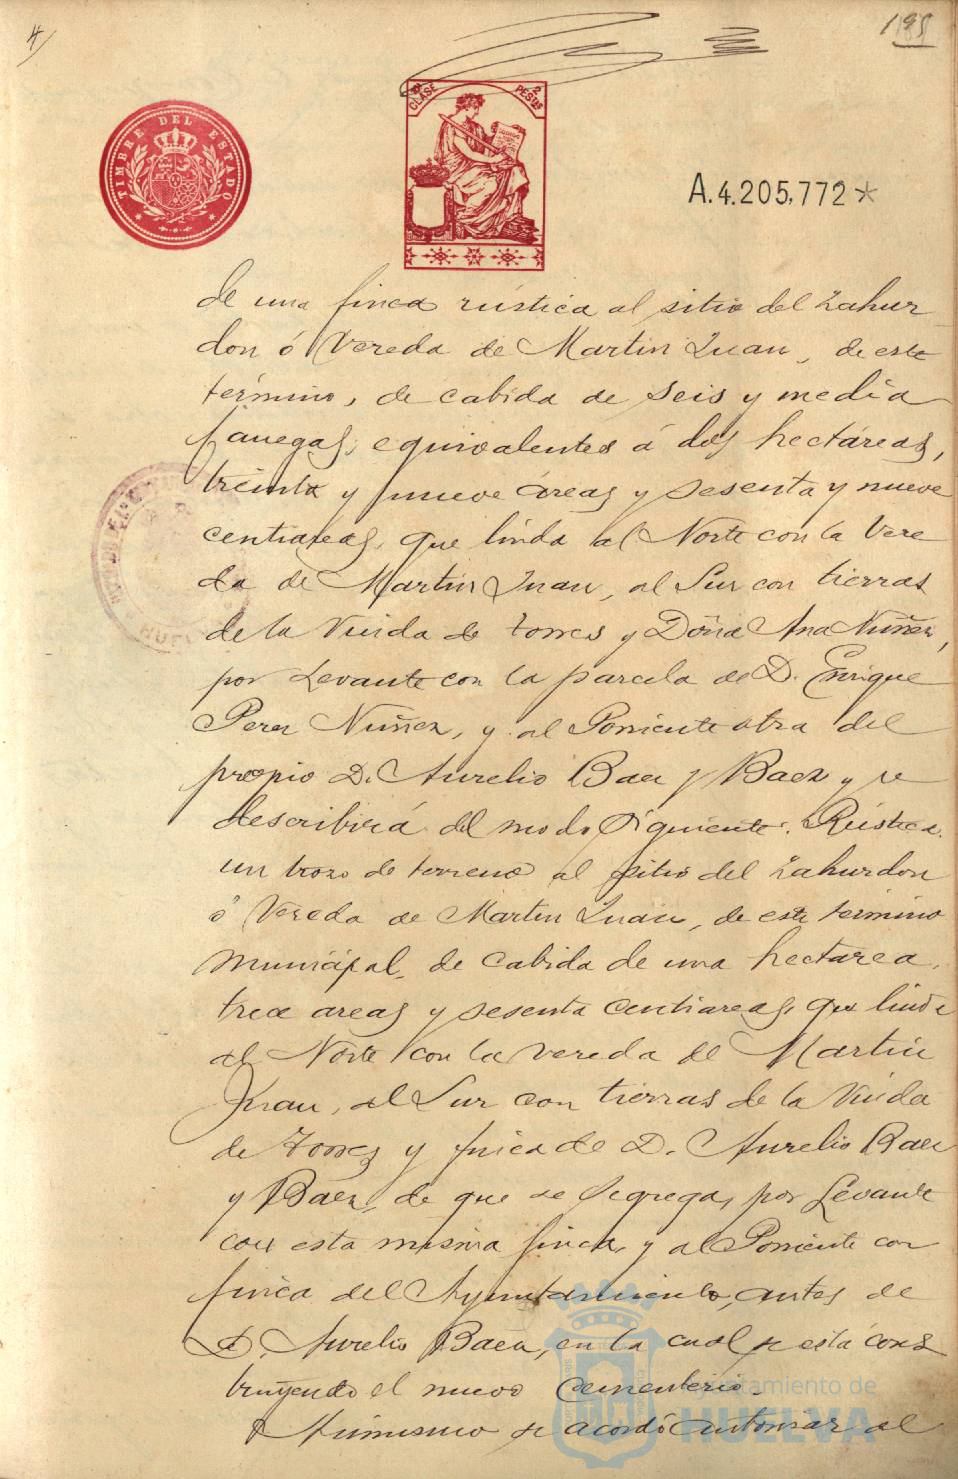 4
199
TIMBRE DEL ESTADO
CLASE 2 PESTAS
A.4.205,772*
de una finca rústica al sitio del Zahur-
don ó Vereda de Martin Juan, de este
término, de cabida de seis y media
fanegas, equivalentes á dos hectáreas,
treinta y nueve áreas y sesenta y nueve
centiareas, que linda al Norte con la Vere
da de Martin Juan, al Sur con tierras
de la Viuda de Torres y Doña Ana Nuñez,
por Levante con la parcela de D. Enrique
Perez Nuñez, y al Poniente otra del
propio D. Aurelio Baez y Baez y se
describirá del modo siguiente. Rústica.
un trozo de terreno al sitio del Zahurdon
ó Vereda de Martin Juan, de este término
municipal, de cabida de una hectarea,
trece areas y sesenta centiareas, que linda
al Norte con la vereda de Martin
Juan, al Sur con tierras de la Viuda
de Torres y finca de D. Aurelio Baez
y Baez, de que se segrega, por Levante
con esta misma finca, y al Poniente con
finca del Ayuntamiento, antes de
D. Aurelio Baez, en la cual se está cons
truyendo el nuevo cementerio.
Asimismo se acordó autorizar al
Ayuntamiento de
HUELVA